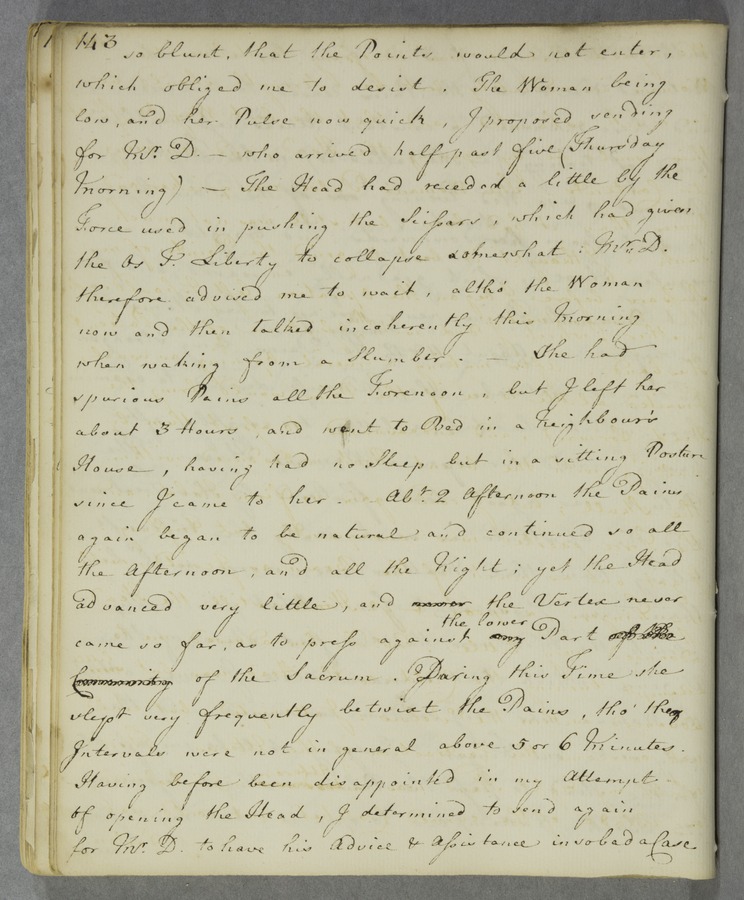 143
so blunt, that the Points would not enter,
which obliged me to desist. The Woman being
low, and her Pulse now quick, I proposed sending
for Mr. D. — who arrived half past five (Thursday
Morning) — The Head had receded a little by the
Force used in pushing the Scissars, which had given
the Os T. Liberty to collapse somewhat: Mr. D.
therefore advised me to wait, altho' the Woman
now and then talked incoherently this Morning
when waking from a Slumber. — She had
spurious Pains all the Forenoon, but I left her
about 3 Hours, and went to Bed in a neighbour's
House, having had no Sleep but in a sitting Posture
since I came to her. Abt. 2 Afternoon the Pains
again began to be natural and continued so all
the Afternoon, and all the Night; yet the Head
advanced very little, and never the Vertex never
the lower
came so far, as to press against any Part of the
of the Sacrum. During this Time she
slept very frequently betwixt the Pains, tho' they
Intervals were not in general above 5 or 6 Minutes.
Having before been disappointed in my Attempt
of opening the Head, I determined to send again
for Mr. D. to have his Advice & Assistance in so bad a Case